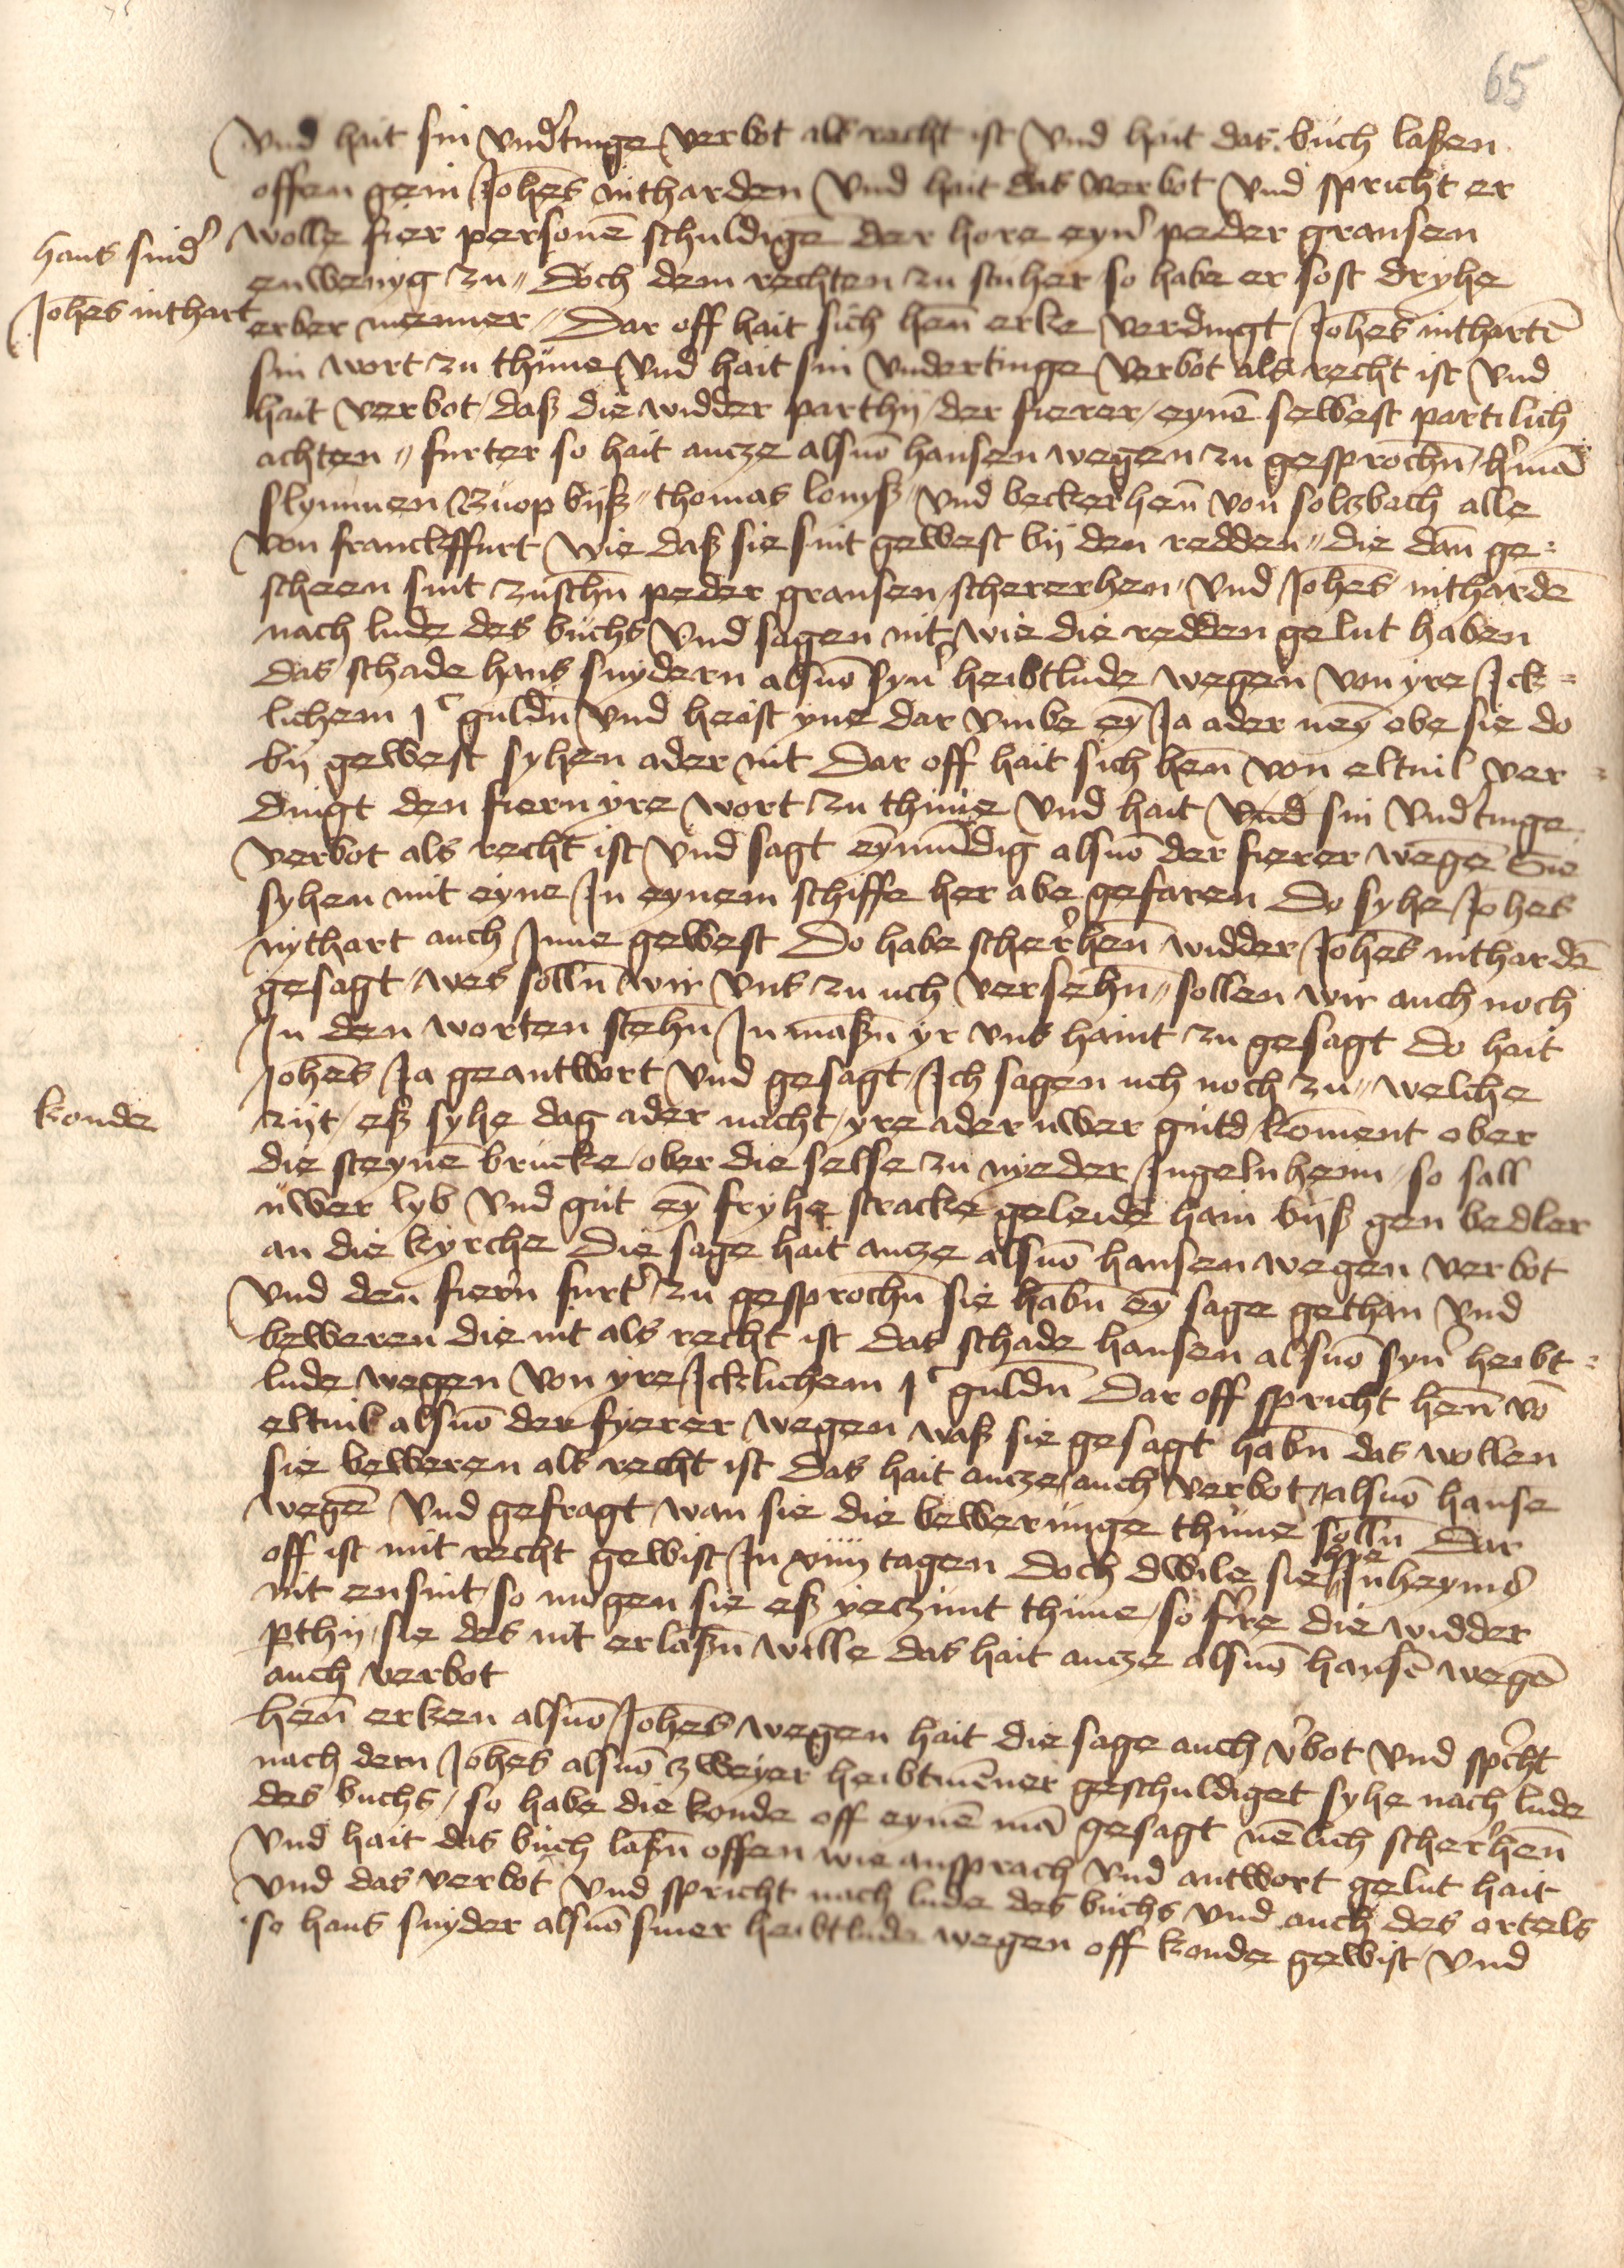 65
vnd hait sin vnd'tinge verbot als recht ist vnd hait das buch laßen
offen gein Joh̄es nitharden vnd hait das verbot vnd spricht er
wolle fier personē schuldigē der hore eyn' peder gransen
hans snid'
enwenyg zu // doch dem rechten zu stuher so habe er sost dryhe
Joh̄es nithart
erber menner // Dar off hait sich hen̄ erke verdingt Joh̄es nithartē
sin wort zu thune vnd hait sin vndertinge verbot als recht ist vnd
hait verbot / daß die widder parthij / der fierer / eynē selbest partilich
achten // furter so hait ancze alsuō hansen wegen zu gesprochn̄ /
slymmen thomas // vnd beckerhen̄ von soltzbach alle
von franckffurt wie daß sie sint gewest bij den redden // die dan̄ ge =
scheen sint zuschn̄ peder gransen / schererhen / vnd Joh̄es nithardē
nach lude des buchs vnd sagen nit wie die redden gelut haben
das schade hans snydern alsuō syn' heibtlude wegen von yre Ick =
lichem jᶜ guldn̄ vnd heist yne dar vmbe eȳ Ja ader neȳ obe sie do
by gewest syhen ader nit Dar off hait sich hen̄ von eltuil ver =
dingt den fiern yre wort zu thune vnd hait vnd sin vnd'tinge
verbot als recht ist vnd sagt eȳmūdig alsuō der fierer wegē Sie
syhen mit eyne In eynem schiffe her abe gefaren Do syhe Joh̄es
nythart auch Inne gewest Do habe scher'hen̄ widder Joh̄es nithardē
gesagt / wes solln̄ wir vns zu uch versehn̄ // sollen wir auch noch
In den worten stehn̄ In maßn̄ yr vns haint zu gesagt Do hait
Joh̄es Ja geantwort vnd gesagt / Ich sagen uch noch zu // welche
konde
zijt / eß syhe dag ader nacht / yre ader uwer gutd koment ober
die steynē brucke / ober die selse zu nyeder Ingelnheim / so sall
uwer lyb vnd gut eȳ fryhe stracke geleide hain bijß gen bedler
an die kyrche Die sage hait ancze alsuō hansen wegen verbot
vnd den fiern furt' zu gesprochn̄ sie habn̄ eȳ sage gethan vnd
beweren die nit als recht ist das schade hansen alsuō syn' heibt =
lude wegen von yre Icklichem jᶜ guldn̄ Dar off spricht hen̄ vō
eltuil alsuō der fyerer wegen waß sie gesagt habn̄ das wollen
sie beweren als recht ist das hait ancze auch verbot / alsuō hanse
wegē vnd gefragt / wan sie die bewerunge thune solln̄ Dar
off ist mit recht gewist In xiiij tagen doch dwile sie hye Inheyms
nit ensint / so mogen sie eß yeczunt thune / so f're die widder
pthij / sie des nit erlaßn̄ wille das hait ancze alsuō hansē wegē
auch verbot
hen̄ erken alsuō Joh̄es wegen hait die sage auch v'bot vnd sp'cht
nach dem Joh̄es alsuō zweyer heibtmēner geschuldiget syhe nach lude
des buchs / so habe die konde off eynē mā gesagt nēlich scher'hen̄
vnd hait das buch laßn̄ offen wie ansprach vnd antwort gelut hait
vnd das verbot vnd spricht nach lude des buchs vnd auch des ortels
so hans snyder alsuō siner heibtlude wegen off konde gewist / vnd